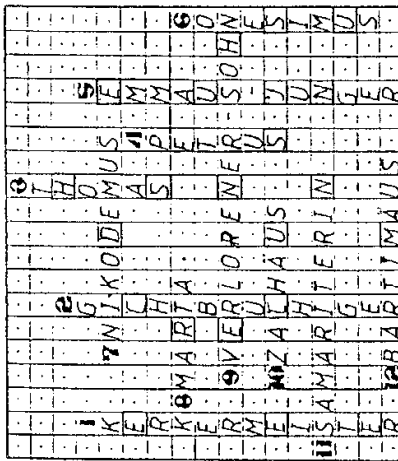 1 KERKERMEISTER
2 GICHTBRÜCHIGE
3 THOMAS
4 PETRUS
5 EMMAUS-JÜNGER
6 ONESIMUS
7 NIKODEMUS
8 MARTA
9 VERLORENE SOHN
10 ZACHÄUS
11 SAMARITERIN
12 BARTIMÄUS